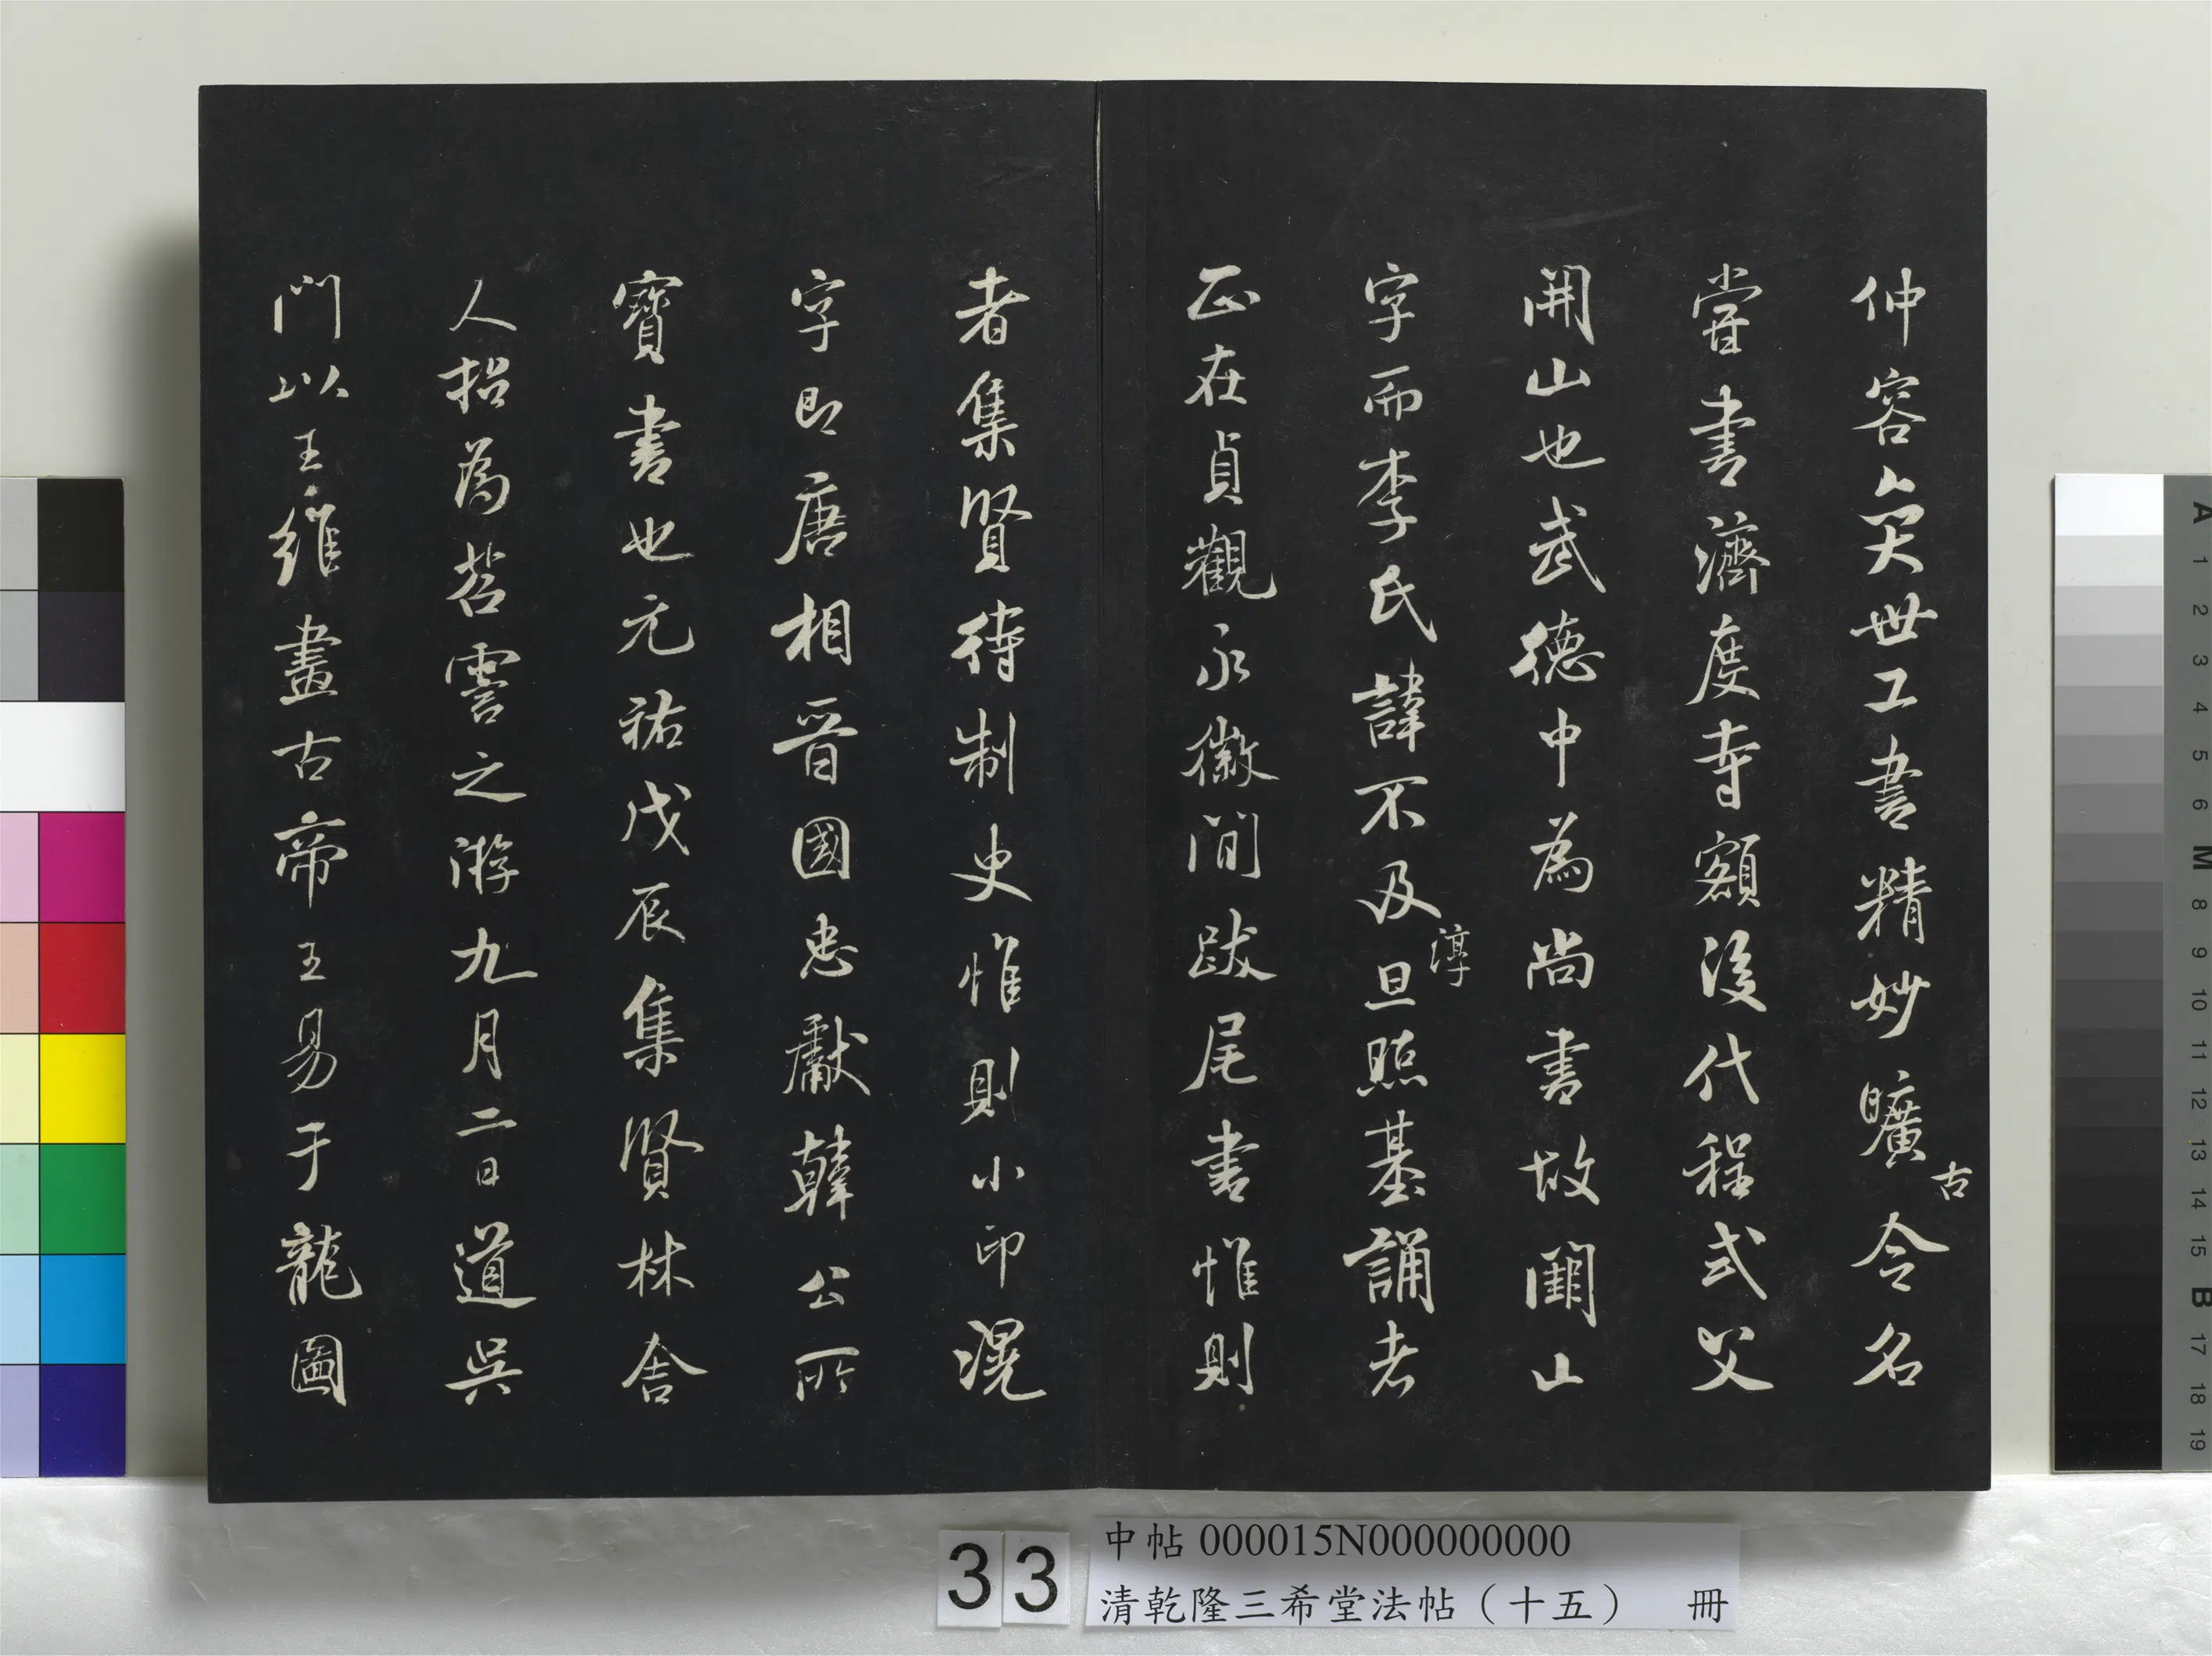 仲容亦天世工書精妙曠古令名
嘗書濟度寺額後代程式父
開山也武德中為尚書故闓山
字而李氏諱不及淳旦照基誦者
正在貞觀永徽間跋尾書惟則
者集賢待制史惟則小印滉
字即唐相晉國忠獻韓公所
寶書也元祐戊辰集賢林舍
人招為苕霅之游九月二日道吳
門以王維畫古帝王易于龍圖
33
中帖 000015N000000000
清乾隆三希堂法帖（十五） 冊
A 1 2 3 4 5 6 M 8 9 10 11 12 13 14 15 B 17 18 19